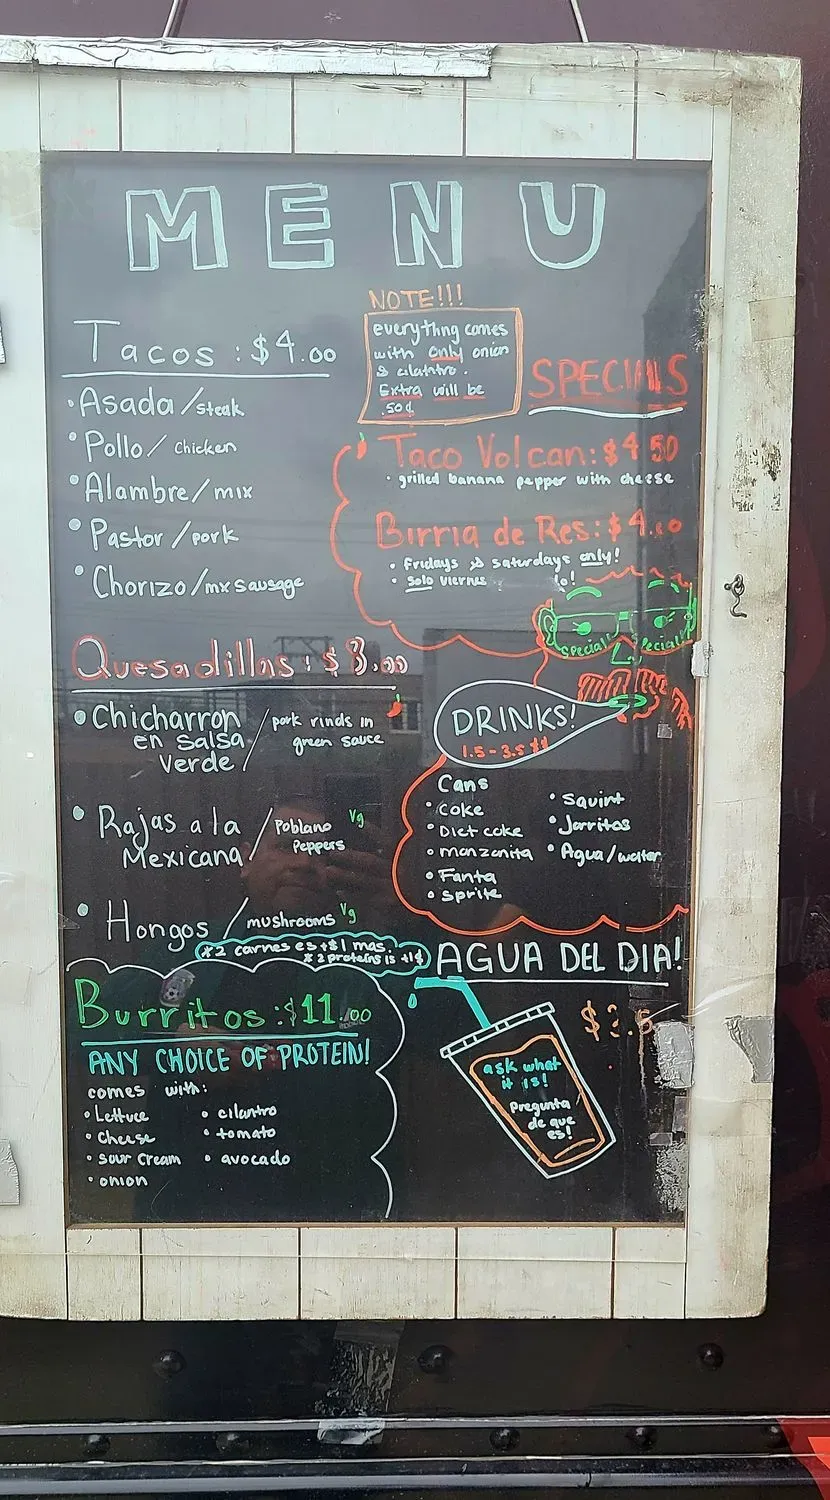 MENU
NOTE!!!
everything comes
with only onion
& cilantro.
Extra will be
.50¢
Tacos : $4.00
• Asada / steak
• Pollo / chicken
• Alambre / mix
• Pastor / pork
• Chorizo / mx sausage
SPECIALS
Taco Volcan: $4.50
• grilled banana pepper with cheese
Birria de Res: $4.
• Fridays & saturdays only!
• Solo viernes
Special Special
Quesadillas : $
• Chicharron / pork rinds in
en salsa green sauce
verde
• Rajas a la / Poblano Vg
Mexicana Peppers
• Hongos / mushrooms Vg
* 2 carnes es +$1 mas.
* 2 proteins is +1¢
DRINKS!
1.5 - 3.5 $$
Cans
• Coke
• Diet coke
• manzanita
• Fanta
• sprite
• Squirt
• Jarritos
• Agua/water
Burritos : $11.00
ANY CHOICE OF PROTEIN!
comes with:
• Lettuce
• cheese
• sour cream
• onion
• cilantro
• tomato
• avocado
AGUA DEL DIA!
ask what
it is!
Pregunta
de que
es!